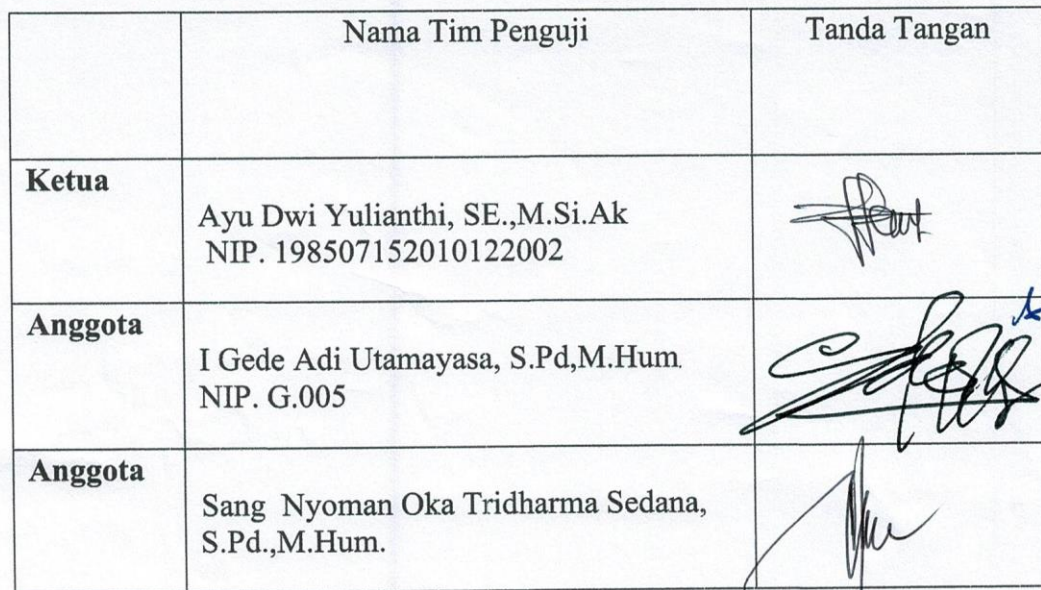 Nama Tim Penguji Tanda Tangan
Ketua
Ayu Dwi Yulianthi, SE.,M.Si.Ak
NIP. 198507152010122002
Anggota
I Gede Adi Utamayasa, S.Pd,M.Hum.
NIP. G.005
Anggota
Sang Nyoman Oka Tridharma Sedana,
S.Pd.,M.Hum.